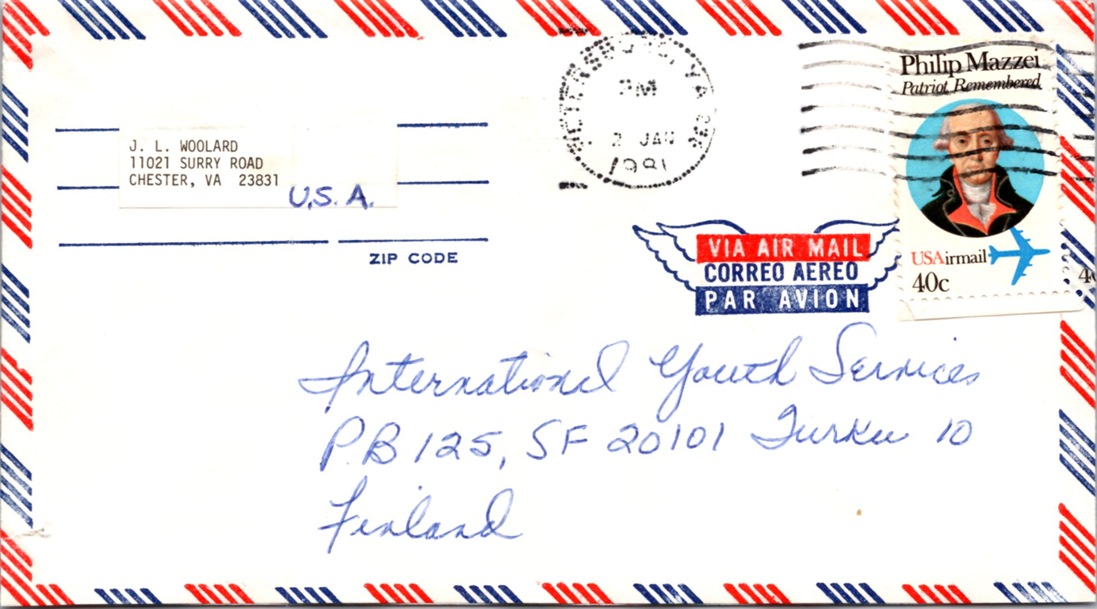 J. L. WOOLARD
11021 SURRY ROAD
CHESTER, VA 23831
U.S.A.
ZIP CODE
PETERSBURG, VA
PM
2 JAN
1981
Philip Mazzei
Patriot Remembered
USAirmail
40c
VIA AIR MAIL
CORREO AEREO
PAR AVION
International Youth Services
P.B 125, SF 20101 Turku 10
Finland